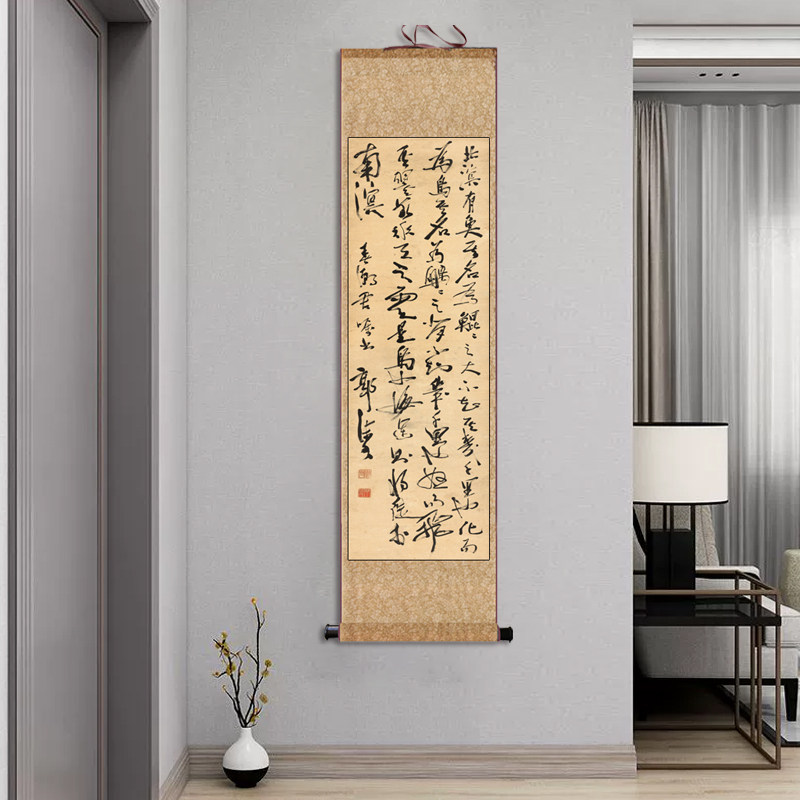 北溟有魚其名為鯤〻之大不知其幾千里也化而
為鳥其名為鵬〻之背不知幾千里也怒而飛
其翼若垂天之雲是鳥也海運則將徙於
南溟 春潮君囑書 郭沫若